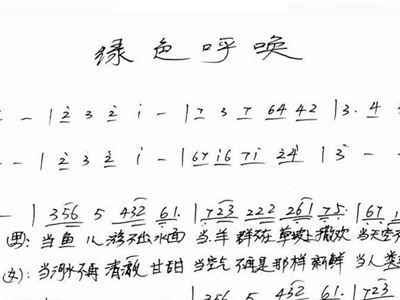 绿色呼唤
- | 2 3 2 i - | 7 3 7 64 42 | 3. 4
- | 2 3 2 i - | 67 i6 7i 24 | 3 -
- | 356 5 432 61. | 723 222 261 75. | 67 1
(男): 当鱼儿游不出水面 当羊群在草坡上撒欢 当天空不
(女): 当河水不再清澈甘甜 当空气不再是那样新鲜 当人类
| 356 5 452 61. | 723